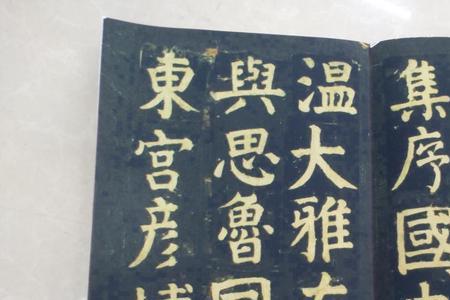 集序國
温大雅在
與思魯同
東宮彦博